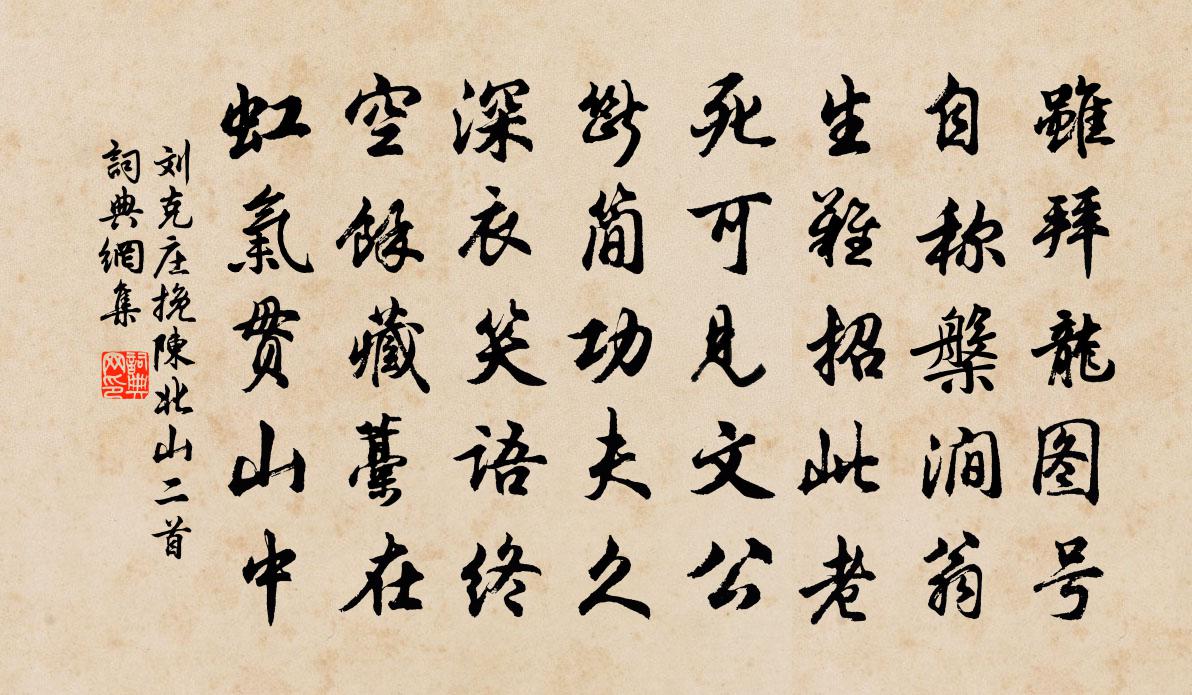 雖拜龍图号
自称槃澗翁
生難招此老
死可见文公
断简功夫久
深衣笑语终
空餘藏藁在
虹氣贯山中
刘克庄挽陳北山二首
詞典網集
詞典网印